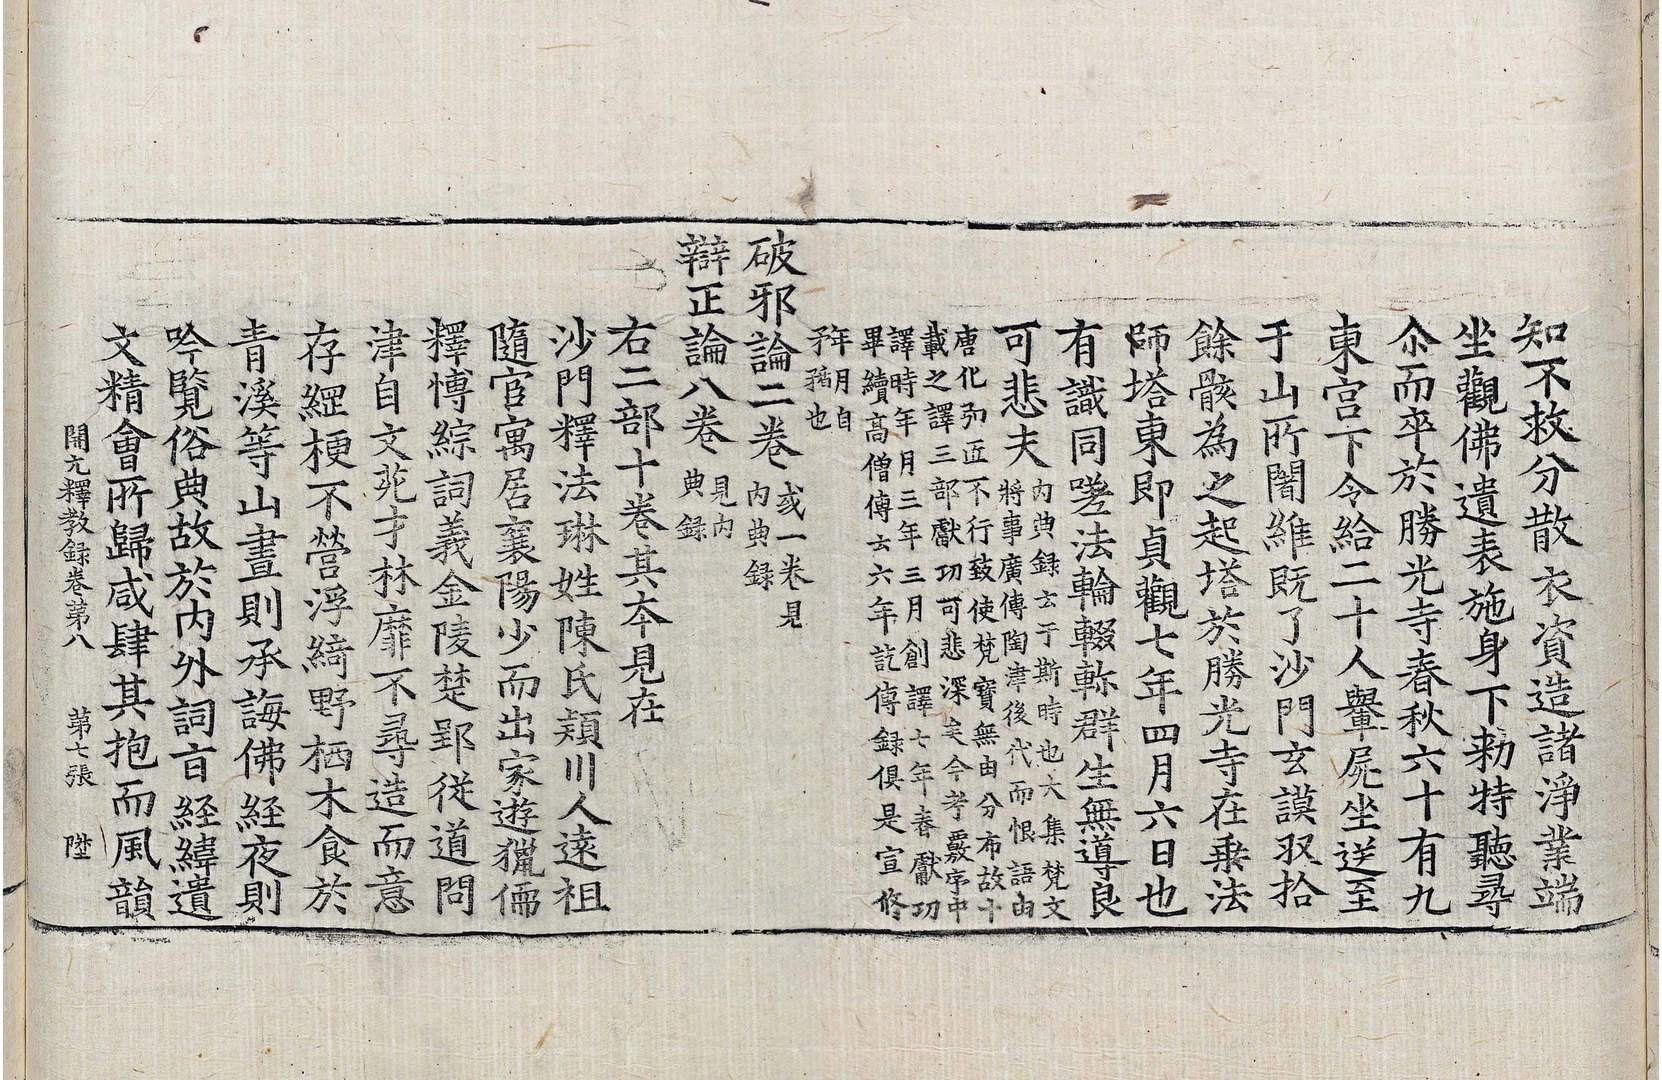 知不救分散衣資造諸淨業端
坐觀佛遺表施身下勑特聽尋
尒而卒於勝光寺春秋六十有九
東宮下令給二十人轝屍坐送至
于山所闍維既了沙門玄謨収拾
餘骸為之起塔於勝光寺在乗法
師塔東即貞觀七年四月六日也
有識同嗟法輪輟軫群生無導良
可悲夫
內典録云于斯時也大集梵文
將事廣傳陶津後代而恨語由
唐化弘匠不行致使梵寶無由分布故十
載之譯三部獻功可悲深矣今考覈序中
譯時年月三年三月創譯七年春獻功
畢續高僧傳云六年訖傳録俱是宣修
年月自
矛楯也
破邪論二卷
或一卷見
內典録
辯正論八卷
見內
典録
右二部十卷其本見在
沙門釋法琳姓陳氏潁川人遠祖
隨官寓居襄陽少而出家遊獵儒
釋愽綜詞義金陵楚郢從道問
津自文苑才林靡不尋造而意
存綱梗不營浮綺野栖木食於
青溪等山晝則承誨佛経夜則
吟覧俗典故於內外詞旨経緯遺
文精會所歸咸肆其抱而風韻
開元釋教録卷第八　第七張　陞